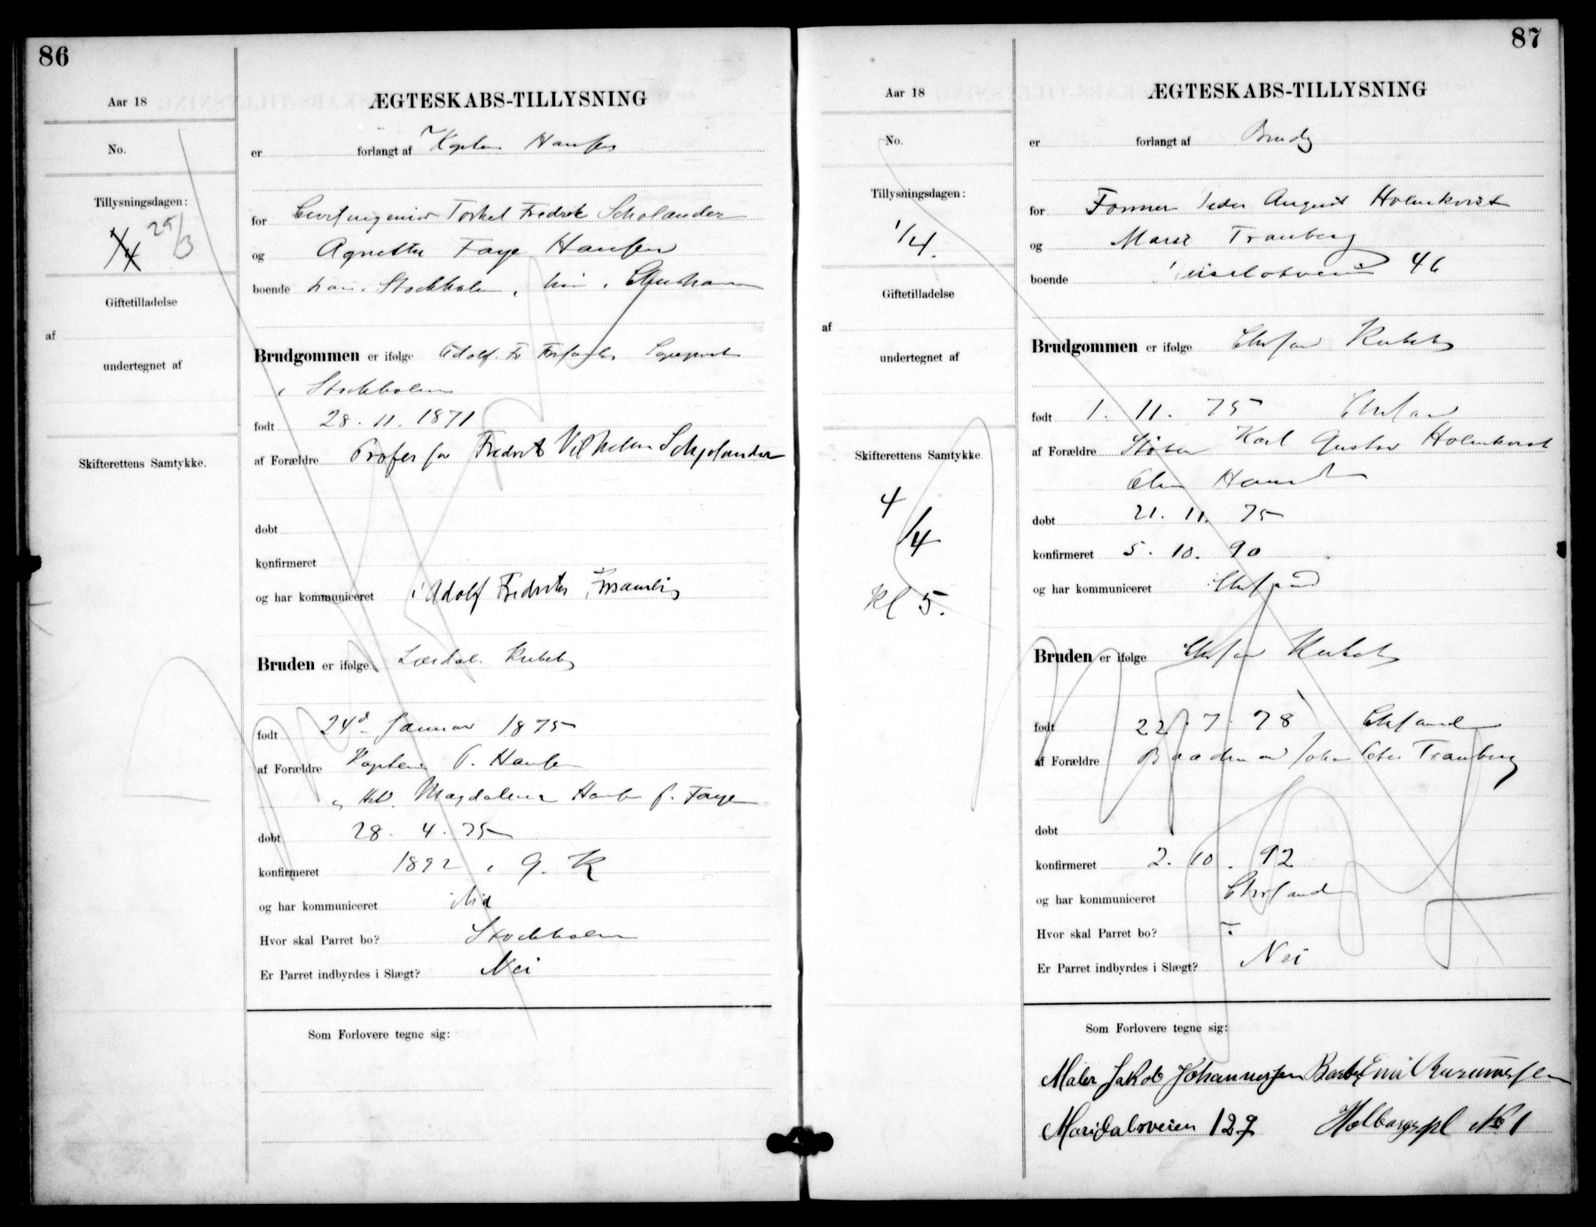 86
Aar 18
ÆGTESKABS-TILLYSNING
No.
er forlangt af Kaptein Hansen
Tillysningsdagen:
1/4 29/3
for Civilingeniør Torkel Fredrik Scholander
og Agnethe Faye Hansen
boende han i Stockholm, hun i
Giftetilladelse
af
undertegnet af
Brudgommen er ifølge Adolf Fr
i Stockholm
født 28. 11. 1871
af Forældre Professor Fredrik Vilhelm Scholander
Skifterettens Samtykke.
døbt
konfirmeret
og har kommuniceret i Adolf Fredriks Forsamling
Bruden er ifølge Lærdal
født 24de Januar 1875
af Forældre Kaptein P. Hansen
og Magdalena Hansen f. Faye
døbt 28. 4. 75
konfirmeret 1892 i G. K
og har kommuniceret
Hvor skal Parret bo? Stockholm
Er Parret indbyrdes i Slægt? Nei
Som Forlovere tegne sig:
87
Aar 18
ÆGTESKABS-TILLYSNING
No.
er forlangt af Brudg
Tillysningsdagen:
1/4.
for Former Peder August Holmkvist
og Marie Tranberg
boende 46
Giftetilladelse
af
undertegnet af
Brudgommen er ifølge
født 1. 11. 75
af Forældre Karl Gustav Holmkvist
Skifterettens Samtykke
4/4
Kl 5.
døbt 21. 11. 75
konfirmeret 5. 10. 90
og har kommuniceret
Bruden er ifølge
født 22. 7. 78
af Forældre Johan Peter Tranberg
døbt
konfirmeret 2. 10. 92
og har kommuniceret
Hvor skal Parret bo?
Er Parret indbyrdes i Slægt? Nei
Som Forlovere tegne sig:
Maler Jakob Johannessen Emil
Maridalsveien 129 Holbergspl No 1